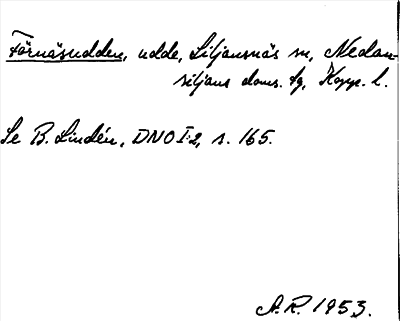 Färnäsudden, udde, Siljansnäs sn, Nedan-
siljans doms. tg, Kopp. l.
Se B. Lindén, DNO I:2, s. 165.
A.R. 1953.